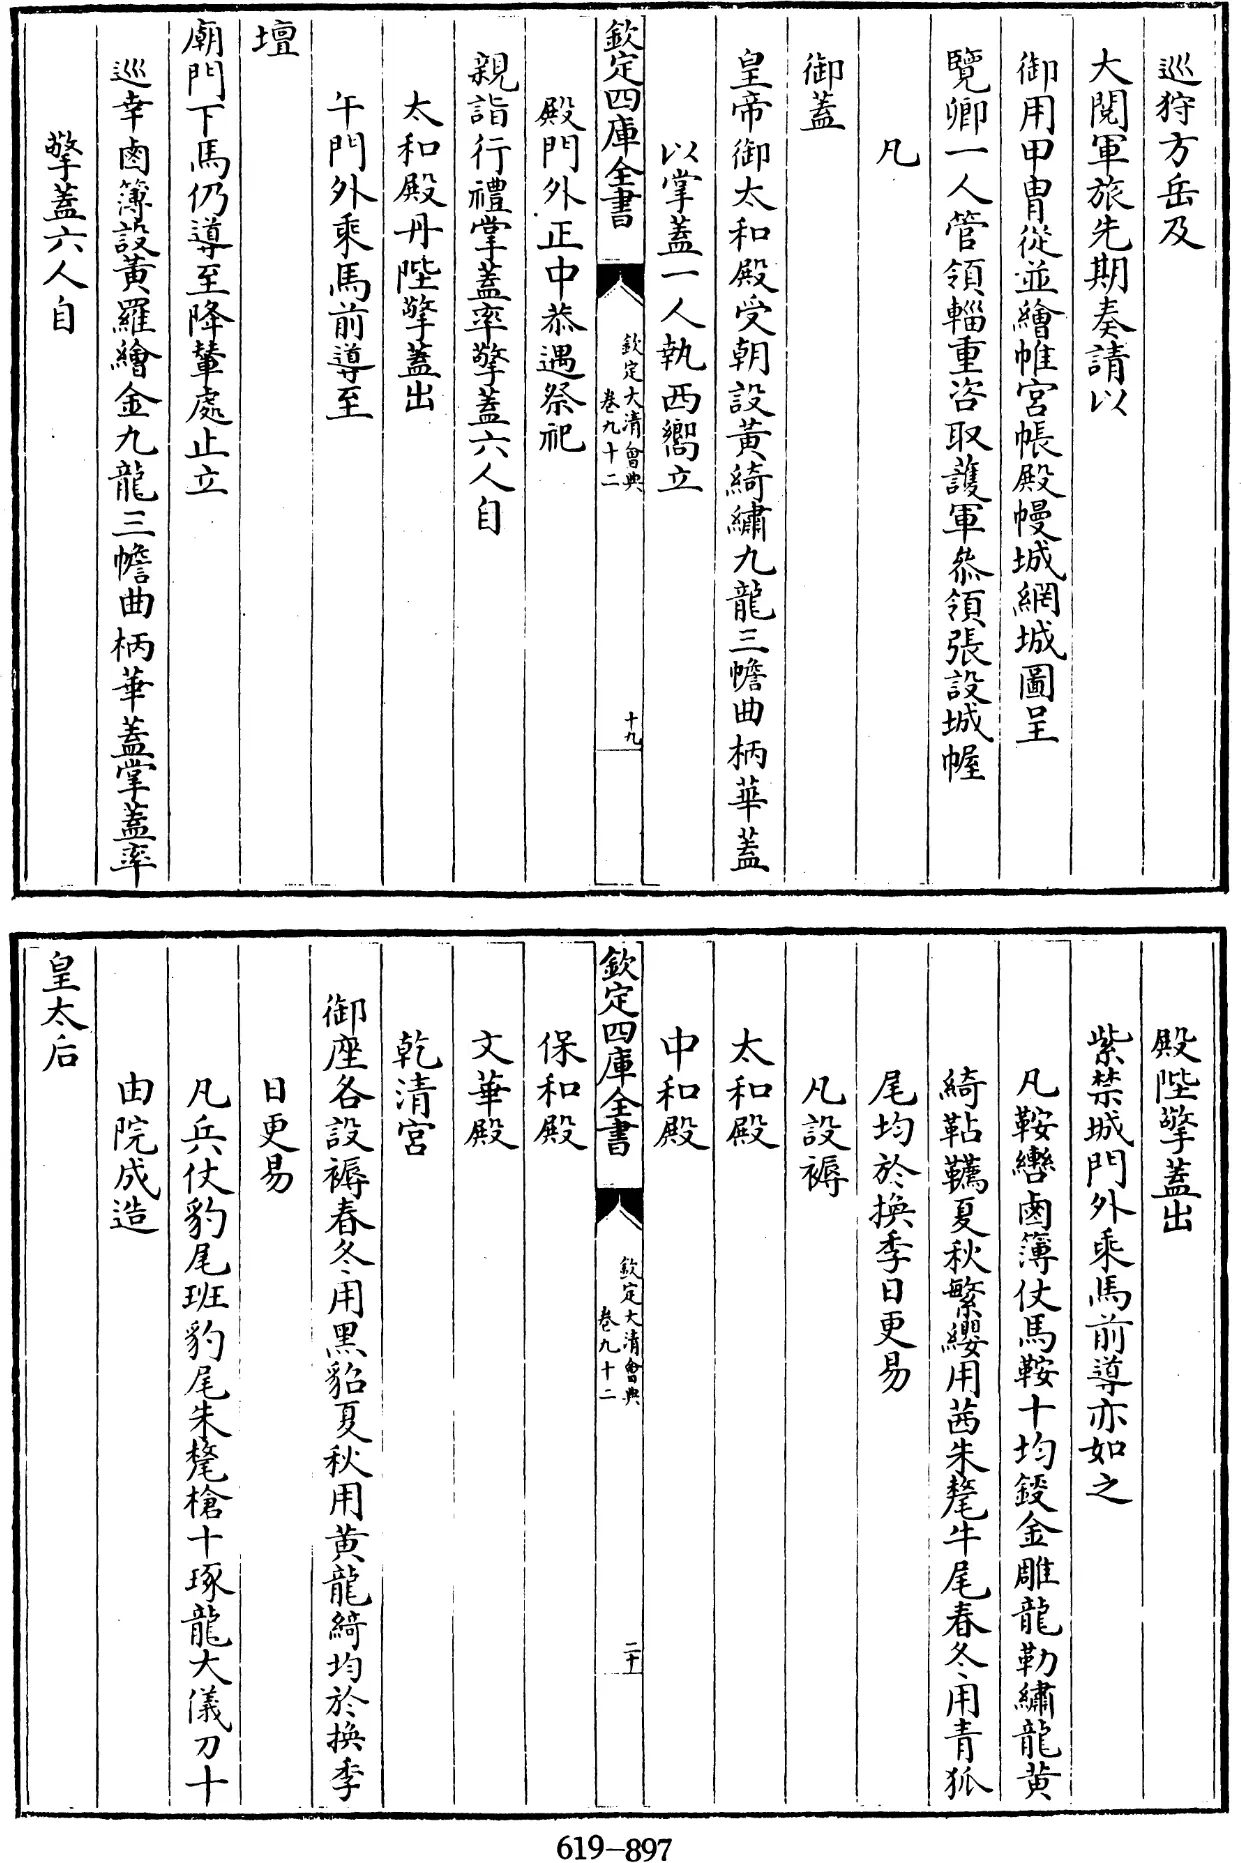 巡狩方岳及
大閱軍旅先期奏請以
御用甲冑從並繪帷宮帳殿幔城網城圖呈
覽卿一人管領輜重咨取護軍叅領張設城幄
凡
御蓋
皇帝御太和殿受朝設黃綺繡九龍三幨曲柄華蓋
以掌蓋一人執西嚮立
欽定四庫全書
欽定大清會典
卷九十二
十九
殿門外正中恭遇祭祀
親詣行禮掌蓋率擎蓋六人自
太和殿丹陛擎蓋出
午門外乘馬前導至
壇
廟門下馬仍導至降輦處止立
巡幸鹵簿設黃羅繪金九龍三幨曲柄華蓋掌蓋率
擎蓋六人自
殿陛擎蓋出
紫禁城門外乘馬前導亦如之
凡鞍轡鹵簿仗馬鞍十均鋄金雕龍勒繡龍黃
綺鞊韉夏秋繁纓用茜朱氂牛尾春冬用青狐
尾均於換季日更易
凡設褥
太和殿
中和殿
欽定四庫全書
欽定大清會典
卷九十二
二十
保和殿
文華殿
乾清宮
御座各設褥春冬用黑貂夏秋用黃龍綺均於換季
日更易
凡兵仗豹尾班豹尾朱氂槍十琢龍大儀刀十
由院成造
皇太后
619-897